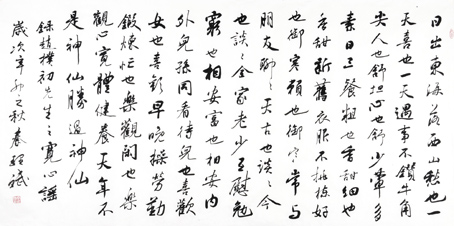 日出東海落西山愁也一
天喜也一天遇事不鑽牛角
尖人也舒担心也舒少葷多
素日三餐粗也香甜細也
香甜新舊衣服不挑揀好
也御寒賴也御寒常与
朋友聊々天古也談々今
也談々全家老少互慰勉
窮也相安富也相安内
外兒孫同看待兒也喜歡
女也喜歡早晚操勞勤
鍛煉忙也樂觀閑也樂
觀心寬體健養天年不
是神仙勝過神仙
録趙樸初先生之寬心謡
歲次辛卯之秋春